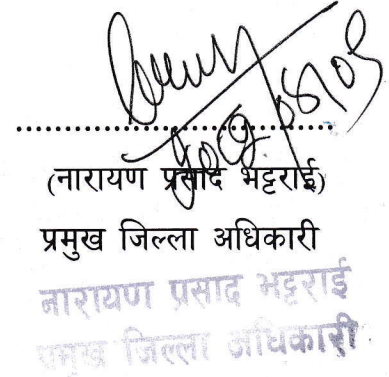 (नारायण प्रसाद भट्टराई)
प्रमुख जिल्ला अधिकारी
नारायण प्रसाद भट्टराई
प्रमुख जिल्ला अधिकारी